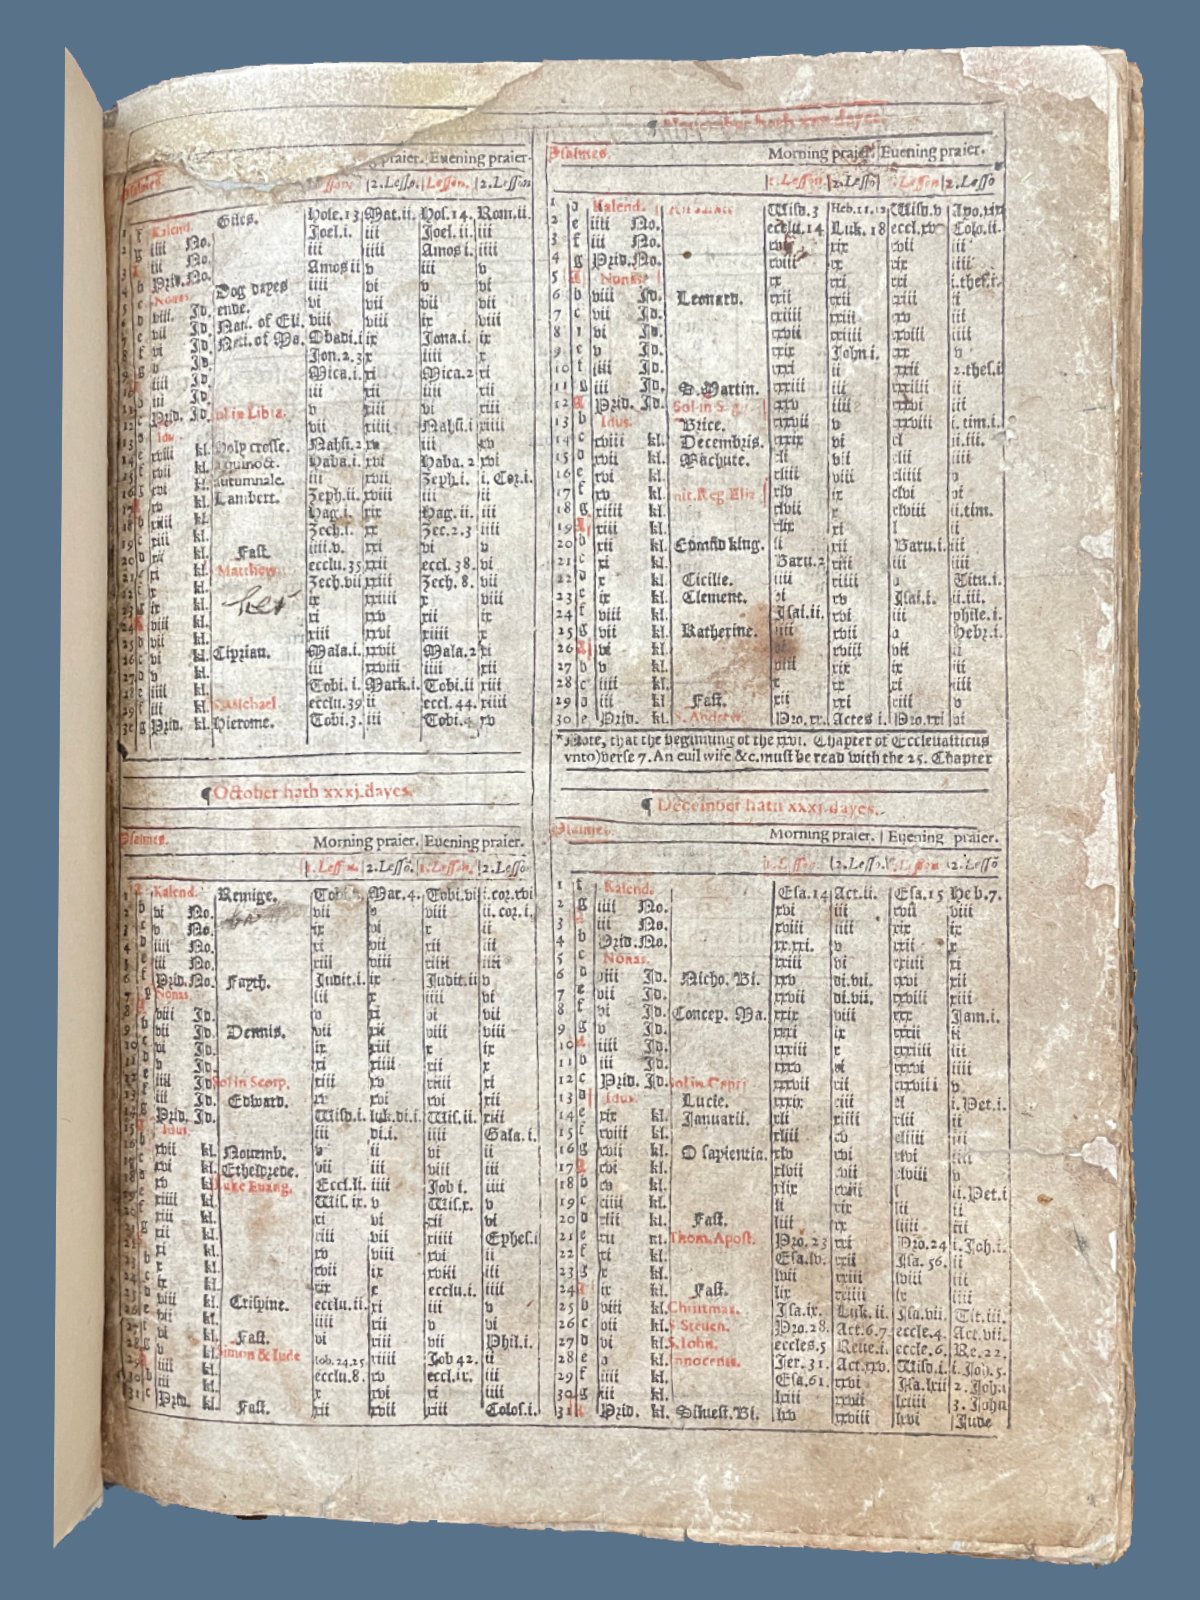 praier. Euening praier.
Psalmes.
Lesson. 2.Lesso. Lesson. 2.Lesson
1 f Kalend. Giles. Hose.13 Mat.ii. Hos.14. Rom.ii.
2 g iiii No. Joel.i. iii Joel.ii. iii
iii No. iii iiii Amos i. iiii
Prid.No. Amos ii v iii v
Nonas. Dog dayes iiii vi v vi
viii Jd. ende. vi vii vii vii
Jd. Nati. of Eli. viii viii ix viii
Jd. Nati. of Ma. Obadi.i ix Jona.i. ix
Jd. Jon.2.3 x iiii x
iiii Jd. Mica.i. xi Mica.2 xi
iii Jd. iii xii iiii xii
Prid. Jd. Sol in Libra. v xiii vi xiii
Idus. vii xiiii Nahũ.i xiiii
xviii kl. Holy crosse. Nahũ.2 xv iii xv
xvii kl. Equinoct. Haba.i. xvi Haba.2 xvi
kl. autumnale. iii xvii Zeph.i. i.Cor.i.
kl. Lambert. Zeph.ii. xviii iii ii
kl. Hag.i. xix Hag.ii. iii
xiii kl. Zech.i. xx Zec.2.3 iiii
kl. Fast. iiii.v. xxi vi v
xi kl. Matthew. ecclu.35 xxii eccl.38. vi
kl. Zech.vii xxiii Zech.8. vii
kl. ix xxiiii x viii
viii kl. xi xxv xii ix
vii kl. xiii xxvi xiiii x
vi kl. Ciprian. Mala.i. xxvii Mala.2 xi
v kl. iii xxviii iiii xii
iiii kl. Tobi.i. Mark.i. Tobi.ii xiii
iii kl. S.Michael ecclu.39 ii eccl.44. xiiii
g Prid. kl. Hierome. Tobi.3. iii Tobi.4 xv
¶ October hath xxxj.dayes.
Psalmes.
Morning praier. Euening praier.
1.Lesson. 2.Lessõ. 1.Lesson. 2.Lesso
1 Kalend. Remige. Tobi. Mar.4. Tobi.vi i.cor.xvi
b vi No. vii v viii ii.cor.i.
v No. ix vi x ii
4 iiii No. xi vii xii iii
iii No. xiii viii xiiii iiii
6 f Prid.No. Fayth. Judit.i. ix Judit.ii v
7 g Nonas. iii x iiii vi
8 viii Jd. v xi vi vii
9 vii Jd. Dennis. vii xii viii viii
vi Jd. ix xiii x ix
v Jd. xi xiiii xii x
iiii Jd. Sol in Scorp. xiii xv xiiii xi
iii Jd. Edward. xv xvi xvi xii
Prid. Jd. Wisd.i. luk.di.i. Wis.ii. xiii
Idus. iii di.i. iiii Gala.i.
xvii kl. Nouemb. v ii vi ii
xvi kl. Etheldrede. vii iii viii iii
xv kl. Luke Euang. Eccl.li. iiii Job i. iiii
xiiii kl. Wis.ix. v Wis.x. v
xiii kl. xi vi xii vi
kl. xiii vii xiiii Ephes.i
xi kl. xv viii xvi ii
x kl. xvii ix xviii iii
kl. xix x ecclu.i. iiii
viii kl. Crispine. ecclu.ii. xi iii v
vii kl. iiii xii v vi
vi kl. Fast. vi xiii vii Phil.i.
v kl. Simon & Jude Job.24.25 xiiii Job 42. ii
iiii kl. ecclu.8. xv eccl.ix. iii
iii kl. x xvi xi iiii
31 c Prid. kl. Fast. xii xvii xiii Colos.i.
hath xxx dayes.
Psalmes. Morning praier. Euening praier.
1.Lesson. 2.Lesso Lesson 2.Lesso
1 Kalend. Wisd.3 Heb.11.12 Wisd.v Apo.xix
2 e iiii No. ecclu.14 Luk.18 eccl.xv Colo.ii.
3 f iii No. xvi xix xvii iii
4 g Prid.No. xviii xx xix iiii
5 Nonas. xx xxi xxi i.thes.i.
6 b viii Jd. Leonard. xxii xxii xxiii ii
7 c vii Jd. xxiiii xxiii xxv iii
8 vi Jd. xxvii xxiiii xxviii iiii
9 e v Jd. xxix John i. xxx v
10 f iiii Jd. xxxi ii xxxii 2.thes.i
11 g iii Jd. S.Martin. xxxiii iii xxxiiii ii
12 Prid. Jd. Sol in Sag. xxxv iiii xxxvi iii
13 b Idus. Brice. xxxvii v i.tim.i.
14 c xviii kl. Decembris. xxxix vi xl ii.iii.
15 d xvii kl. Machute. xli vii xlii iiii
16 e xvi kl. xliii viii xliiii v
17 f xv kl. Init.Reg.Eliz xlv ix xlvi vi
18 g xiiii kl. xlvii x xlviii ii.tim.
19 xiii kl. xlix xi l ii
20 b xii kl. Edmũd king. li xii Baru.i. iii
21 c xi kl. Baru.2 xiii iii iiii
22 x kl. Cicilie. iiii xiiii v Titu.i.
23 e ix kl. Clement. vi xv Isai.i. ii.iii.
24 f viii kl. Isai.ii. xvi iii phile.i.
25 g vii kl. Katherine. iiii xvii v Hebr.i.
26 vi kl. vi xviii vii ii
27 b v kl. viii xix ix iii
28 c iiii kl. x xx xi iiii
29 iii kl. Fast. xii xxi xiii v
30 e Prid. kl. S. Andrew. Pro.xx. Actes i. Pro.xxi vi
*Note, that the beginning of the xxvi. Chapter of Ecclesiasticus
vnto)verse 7. An euil wife &c.must be read with the 25. Chapter
¶ December hath xxxj.dayes.
Psalmes. Morning praier. Euening praier.
1.Lesson 2.Lesso. Lesson 2.Lessõ
1 f Kalend. Esa.14 Act.ii. Esa.15 Heb.7.
2 g iiii No. xvi iii xvii viii
3 iii No. xviii iiii xix ix
4 b Prid.No. xx.xxi. v xxii x
5 c Nonas. xxiii vi xxiiii xi
6 d viii Jd. Nicho. Bi. xxv di.vii. xxvi xii
7 e vii Jd. xxvii di.vii. xxviii xiii
8 f vi Jd. Concep. Ma. xxix viii xxx Jam.i.
9 g v Jd. xxxi ix xxxii ii
10 iiii Jd. xxxiii x xxxiiii iii
11 b iii Jd. xxxv xi xxxvi iiii
12 c Prid. Jd. Sol in Capri xxxvii xii xxxviii v
13 d Idus. Lucie. xxxix xiii xl i.Pet.i.
14 e xix kl. Januarii. xli xiiii xlii ii
15 f xviii kl. xliii xv xliiii iii
16 g xvii kl. O sapientia. xlv xvi xlvi iiii
17 xvi kl. xlvii xvii xlviii v
18 b xv kl. xlix xviii l ii.Pet.i
19 c xiiii kl. li xix lii ii
20 d xiii kl. Fast. liii xx liiii iii
21 e xii kl. Thom. Apost. Pro.23 xxi Pro.24 i.Joh.i.
22 f xi kl. Esa.lv. xxii Isa.56. ii
23 g x kl. lvii xxiii lviii iii
24 ix kl. Fast. lix xxiiii lx iiii
25 b viii kl. Christmas. Isa.ix. Luk.ii. Isa.vii. Tit.iii.
26 c vii kl. S Steuen. Pro.28. Act.6.7 eccle.4. Act.vii.
27 d vi kl. S.Iohn. eccles.5 Reue.i. eccle.6. Re.22.
28 e v kl. Innocents. Jer.31. Act.xxv. Wisd.i. i.Joh.5.
29 f iiii kl. Esa.61. xxvi Isa.lxii 2.Joh.i
30 g iii kl. lxiii xxvii lxiiii 3.John
31 Prid. kl. Siluest.Bi. lxv xxviii lxvi Jude